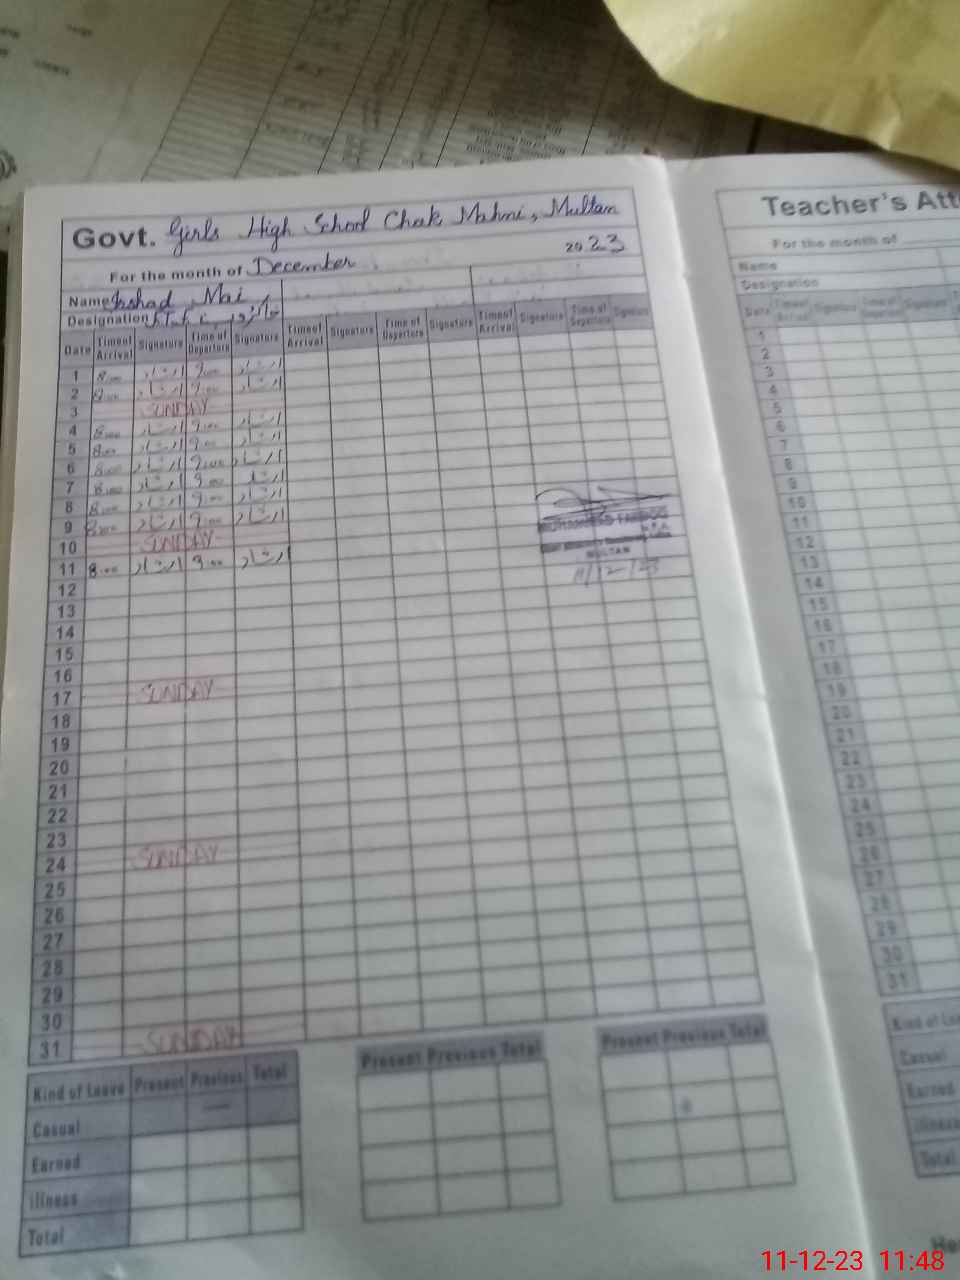 Govt. Girls High School Chak Mahni, Multan
For the month of December 2023
Name Irshad Mai
Designation
Date Time of Arrival Signature Time of Departure Signature Time of Arrival Signature Time of Departure Signature Time of Arrival Signature Time of Departure Signature
1 8:00 ارشاد 9:00 ارشاد
2 8:00 ارشاد 9:00 ارشاد
3 SUNDAY
4 8:00 ارشاد 9:00 ارشاد
5 8:00 ارشاد 9:00 ارشاد
6 8:00 ارشاد 9:00 ارشاد
7 8:00 ارشاد 9:00 ارشاد
8 8:00 ارشاد 9:00 ارشاد
9 8:00 ارشاد 9:00 ارشاد
10 SUNDAY
11 8:00 ارشاد 9:00 ارشاد
MULTAN
11/12/23
12
13
14
15
16
17 SUNDAY
18
19
20
21
22
23
24 SUNDAY
25
26
27
28
29
30
31 SUNDAY
Kind of Leave Present Previous Total
Casual
Earned
illness
Total
Present Previous Total
Present Previous Total
Teacher's Att
For the month of
Name
Designation
Date Time of Arrival Signature Time of Departure Signature
1
2
3
4
5
6
7
8
9
10
11
12
13
14
15
16
17
18
19
20
21
22
23
24
25
26
27
28
29
30
31
Kind of Le
Casual
Earned
illness
Total
11-12-23 11:48